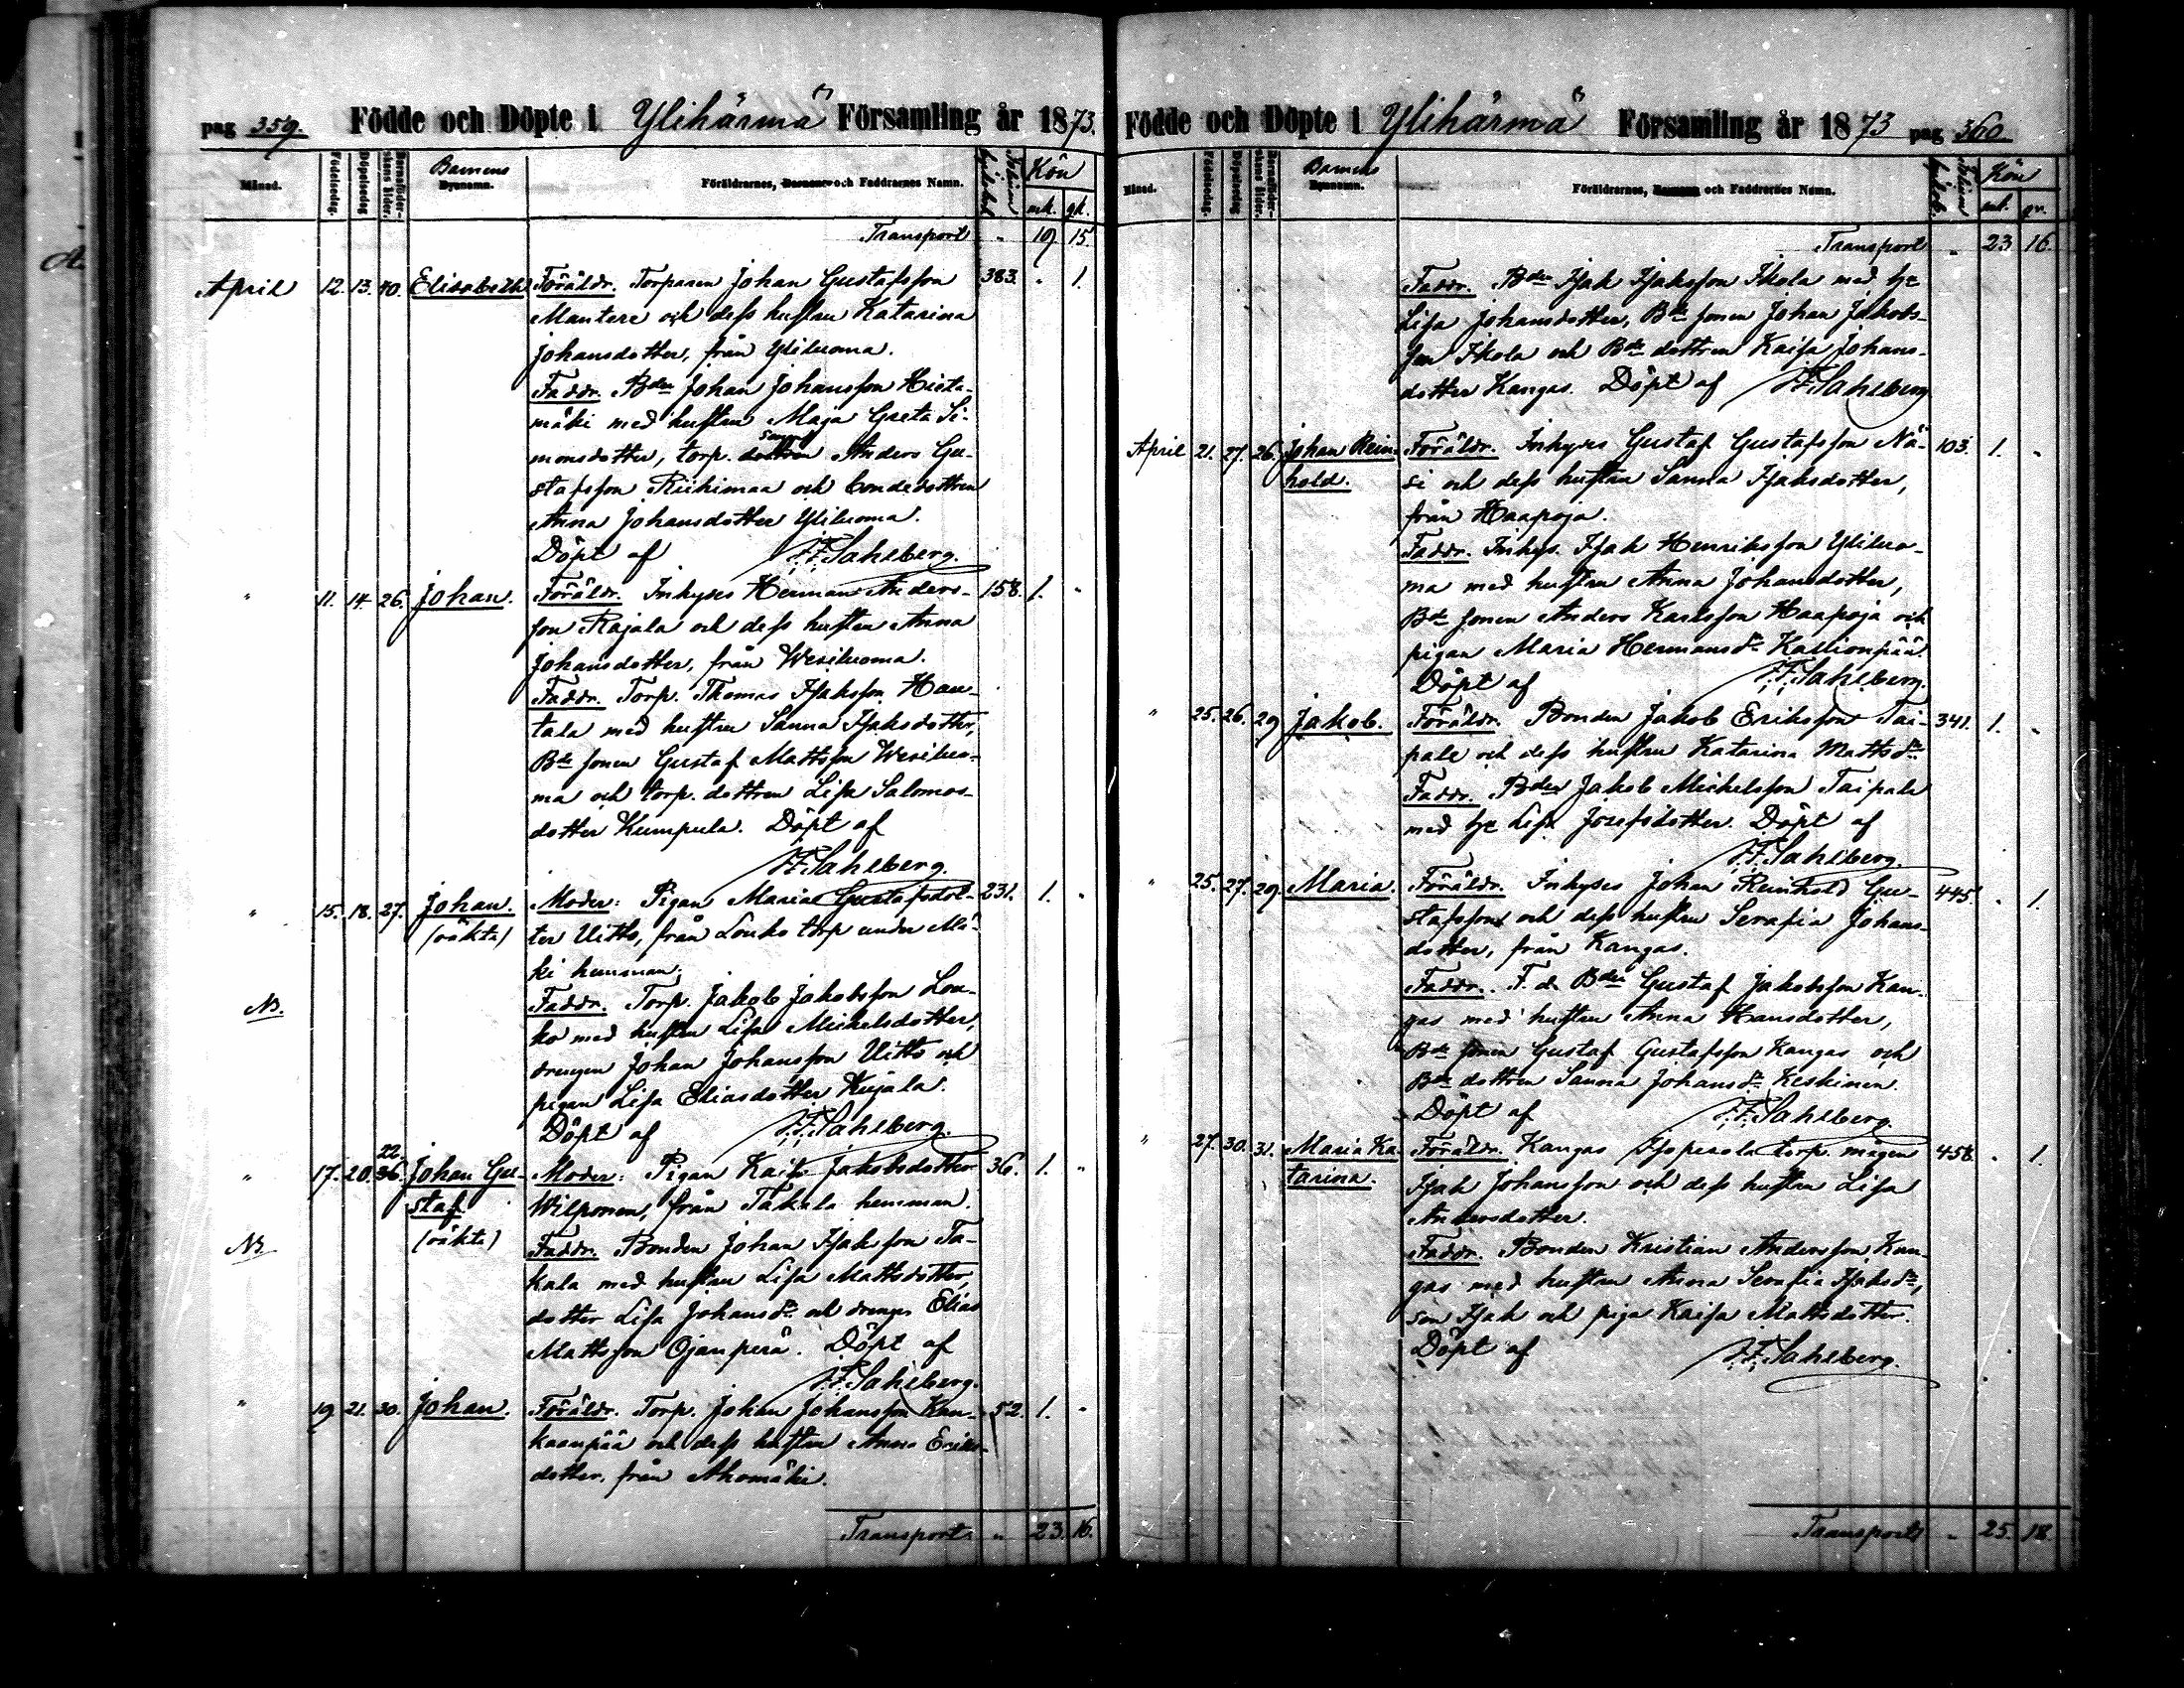 pag 359. Födde och Döpte i Ylihärmä Församling år 1873.
Månad. Födelsedag. Döpelsedag Barnaföderskans ålder. Barnens Föräldrarnes, Barnens och Faddrarnes Namn. Kön
mk. qk.
Transport " 19 15
April 12. 13. 40. Elisabeth Föräldr. Torparen Johan Gustafsson 383. " 1.
Mantere och dess hustru Katarina
Johansdotter, från Yliluoma.
Faddr. Bden Johan Johansson Hieta-
mäki med hustru Maja Greta Si-
monsdotter, torp. sonen Anders Gu-
stafsson Riihimaa och bondedottren
Anna Johansdotter Yliluoma.
Döpt af F.F. Sahlberg.
" 11. 14. 26. Johan. Föräldr. Inhyses Herman Anders- 158. 1. "
son Rajala och dess hustru Anna
Johansdotter, från Wesiluoma.
Faddr. Torp. Thomas Isaksson Hau-
tala med hustru Sanna Isaksdotter,
Bde sonen Gustaf Mattsson Wesiluo-
ma och torp. dottren Lisa Salomos-
dotter Kumpula. Döpt af
F.F. Sahlberg.
" 15. 18. 27. Johan. Moder: Pigan Maria Gustafsdot- 231. 1. "
(oäkta) ter Uitto, från Louko torp under Mä-
ki hemman.
NB. Faddr. Torp. Jakob Jakobsson Lou-
ko med hustru Lisa Michelsdotter,
drengen Johan Johansson Uitto och
pigan Lisa Eliasdotter Kujala.
Döpt af F.F. Sahlberg.
22.
" 17. 20. 36. Johan Gu- Moder: Pigan Kaisa Jakobsdotter 36. 1. "
staf. Wilponen, från Takala hemman.
NB. (oäkta) Faddr. Bonden Johan Isaksson Ta-
kala med hustru Lisa Mattsdotter,
dotter Lisa Johansdr och drengen Elias
Mattsson Ojanperä. Döpt af
F.F. Sahlberg.
" 19. 21. 30. Johan. Föräldr. Torp. Johan Johansson Kan- 52. 1. "
kaanpää och dess hustru Anna Eriks-
dotter, från Ahomäki.
Transport " 23. 16.
Födde och Döpte i Ylihärmä Församling år 1873 pag 360
Månad. Födelsedag. Döpelsedag Barnaföderskans ålder. Barnens Föräldrarnes, Barnens och Faddrarnes Namn. Kön
mk. qv.
Transport " 23 16.
Faddr. Bden Isak Isaksson Ikola med h:u
Lisa Johansdotter, Bde sonen Johan Jakobs-
son Ikola och Bde dottren Kaisa Johans-
dotter Kangas. Döpt af F.F. Sahlberg
April 21. 27. 26. Johan Rein- Föräldr. Inhyses Gustaf Gustafsson Nä- 103. 1. "
hold. si och dess hustru Sanna Isaksdotter,
från Haapoja.
Faddr. Inhys. Isak Henriksson Yliluo-
ma med hustru Anna Johansdotter,
Bde sonen Anders Karlsson Haapoja och
pigan Maria Hermansdr Kallionpää.
Döpt af F.F. Sahlberg.
" 25. 26. 29 Jakob. Föräldr. Bonden Jakob Eriksson Tai- 341. 1. "
pale och dess hustru Katarina Mattsdr
Faddr. Bden Jakob Michelsson Taipale
med h:u Lisa Josefsdotter. Döpt af
F.F. Sahlberg.
" 25. 27. 29. Maria. Föräldr. Inhyses Johan Reinhold Gu- 445. " 1.
stafsson och dess hustru Serafia Johans-
dotter, från Kangas.
Faddr. F. d. Bden Gustaf Jakobsson Kan-
gas med hustru Anna Hansdotter,
Bde sonen Gustaf Gustafsson Kangas och
Bde dottren Sanna Johansdr Keskinen.
Döpt af F.F. Sahlberg.
" 27. 30. 31. Maria Ka- Föräldr. Kangas torp. mågen 458. " 1.
tarina. Isak Johansson och dess hustru Lisa
Andersdotter.
Faddr. Bonden Kristian Andersson Kan-
gas med hustru Anna Serafia Isaksdr,
son Isak och piga Kaisa Mattsdotter.
Döpt af F.F. Sahlberg.
Transport " 25. 18.